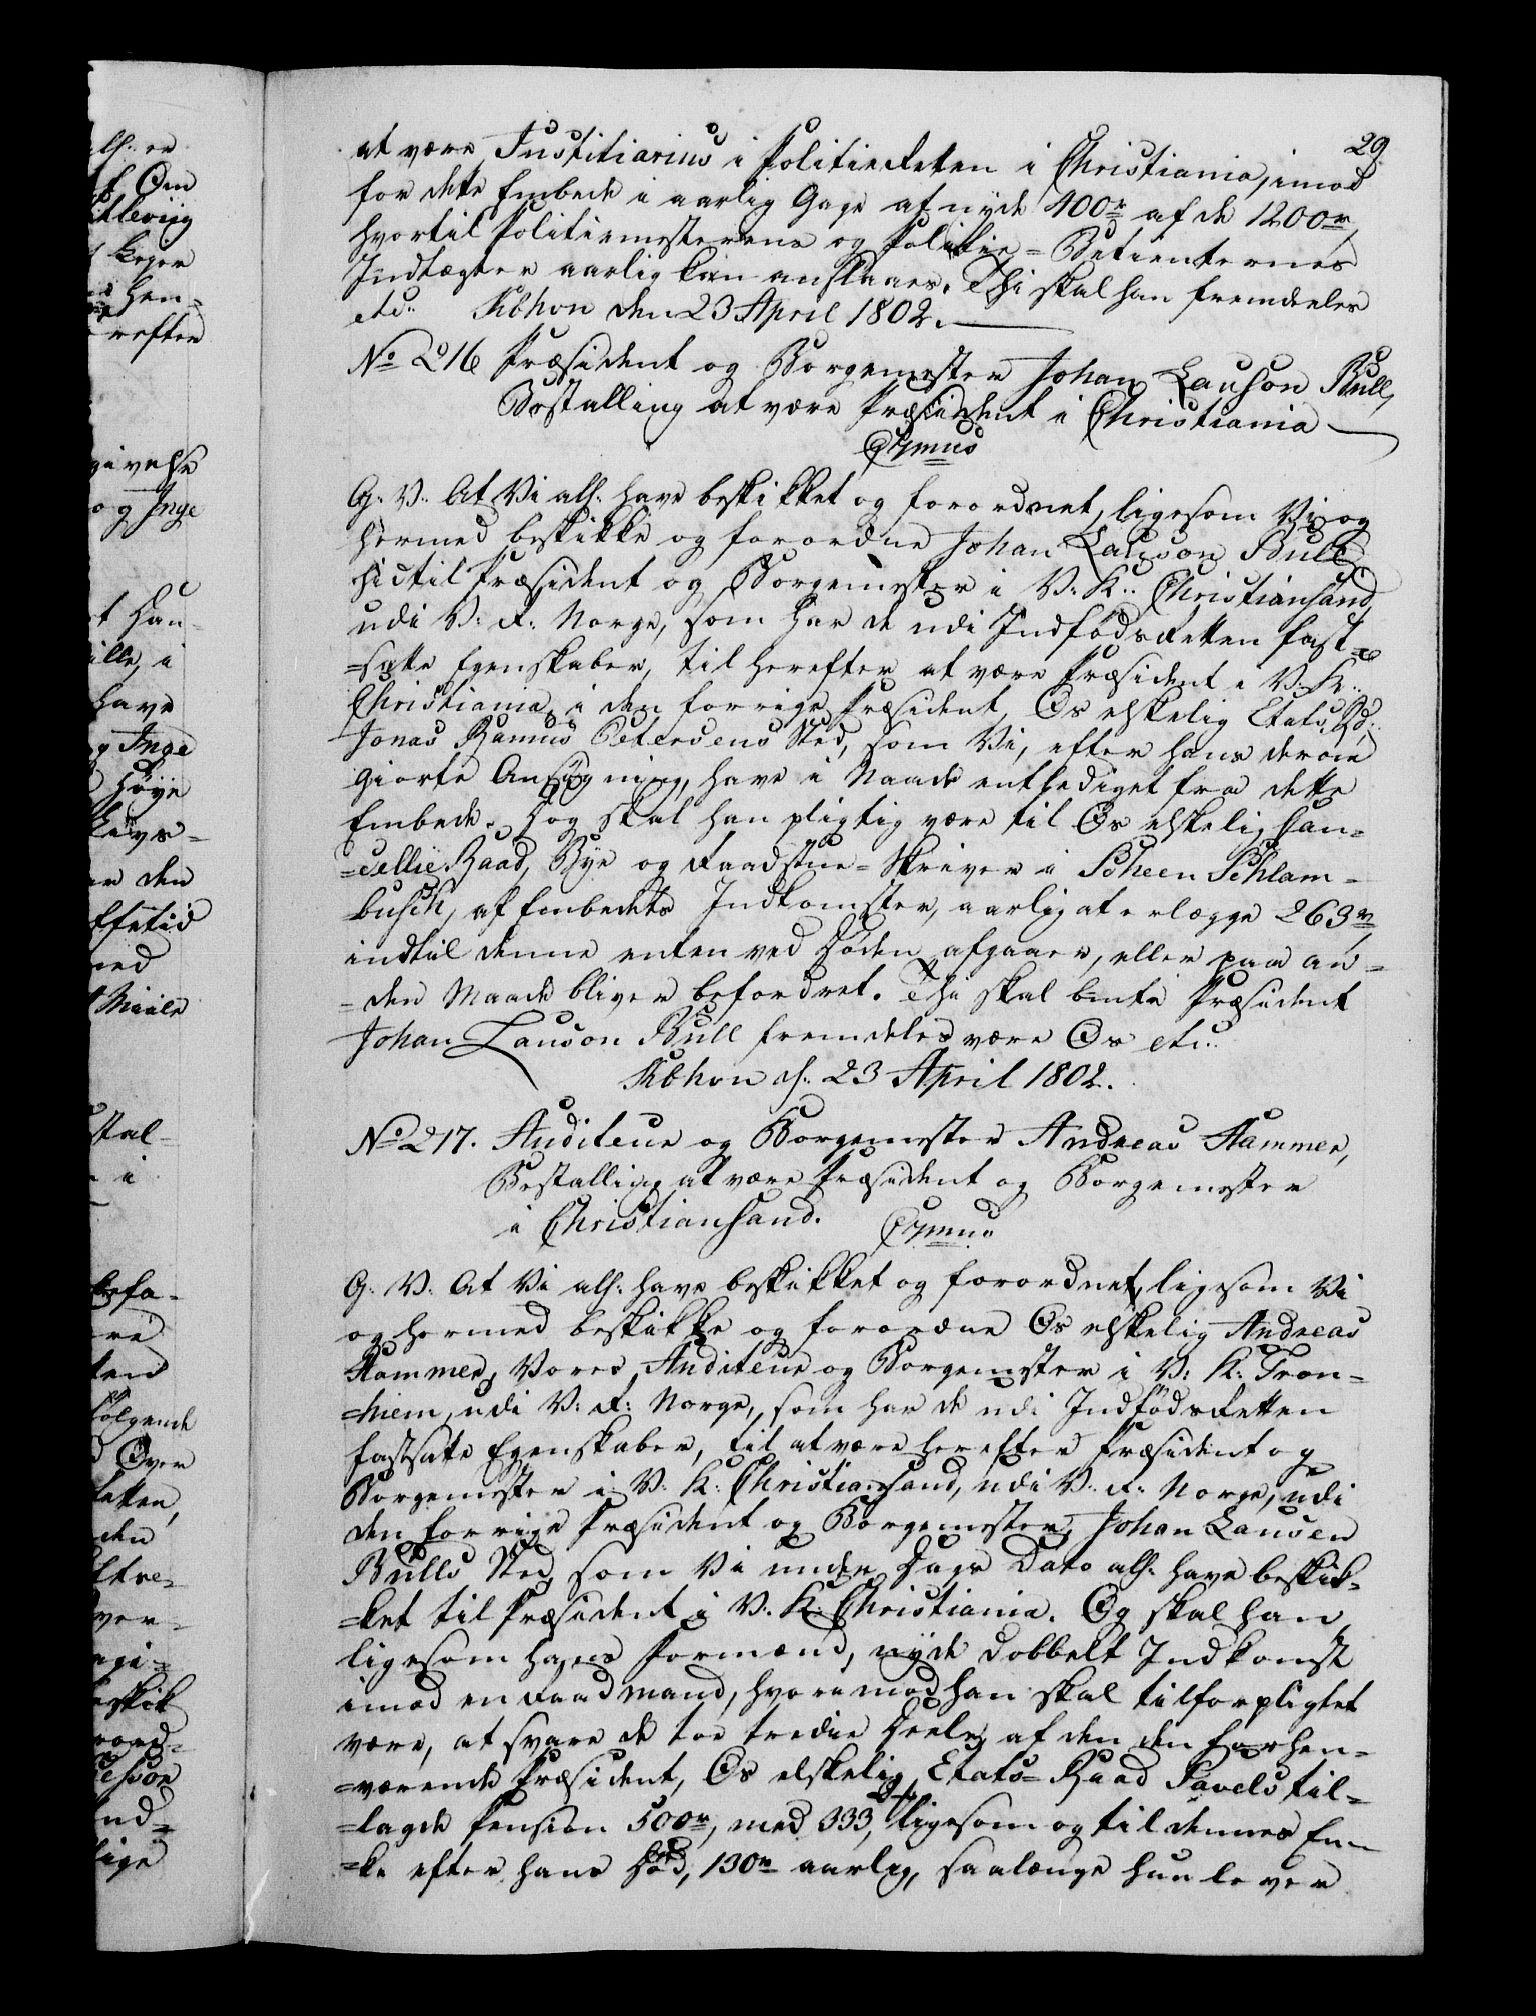 29.
at være Justitiarius i Politieretten i Christiania, imod
for dette Embede i aarlig Gage at nyde 400r af de 1200r,
hvortil Politiemesterens og Politie-Betienternes
Indtægter aarlig kan anslaaes. Thi skal han fremdeles
etc. Kbhvn den 23 April 1802.
No 216 Præsident og Borgemester Johan Lauson Bull,
Bestalling at være Præsident i Christiania
G. V. At Vi alh. have beskikket og forordnet, ligesom Vi og
hermed beskikke og forordne Johan Lauson Bull,
hidtil Præsident og Borgemester i V. K. Christiansand,
udi V. R. Norge, som har de udi Indfødsretten fast-
=satte Egenskaber, til herefter at være Præsident i V. K.
Christiania, i den forrige Præsident, Os elskelig Etats Rd.
Jonas Ramus Petersens Sted, som Vi, efter hans derom
giorte Ansøgning, have i Naade entlediget fra dette
Embede. Dog skal han pligtig være til Os elskelig Can-
=cellie Raad, Bye og Raadstue-Skriver i Scheen Schlam-
busch, af Embedets Indkomster, aarlig at erlægge 263r,
indtil denne enten ved Døden afgaaer, eller paa an-
=den Maade bliver befordret. Thi skal bemte Præsident
Johan Lauson Bull fremdeles være Os etc.
Kbhvn d. 23 April 1802.
No 217. Auditeur og Borgemester Andreas Hammer,
Bestalling at være Præsident og Borgemester
i Christiansand.
G. V. At Vi alh. have beskikket og forordnet, ligesom Vi
og hermed beskikke og forordne Os elskelig Andreas
Hammer, Vores Auditeur og Borgemester i V. K. Tron-
=hiem, udi V. R. Norge, som har de udi Indfødsretten
fastsatte Egenskaber, til at være herefter Præsident og
Borgemester i V. K. Christiansand, udi V. R. Norge, udi
den forrige Præsident og Borgemester, Johan Lausen
Bulls Sted, som Vi under Dags Dato alh. have beskik-
=ket til Præsident i V. K. Christiania. Og skal han
ligesom hans Formænd, nyde dobbelt Indkomst
imod en Raadmand, hvorimod han skal tilforpligtet
være, at svare de toe tredie Deele af den den forhen-
=værende Præsident, Os elskelig, Etats-Raad Pavels til-
=lagde Pension 500r, med 333, ligesom og til dennes En-
=ke efter hans Død, 130r aarlig, saalænge hun lever